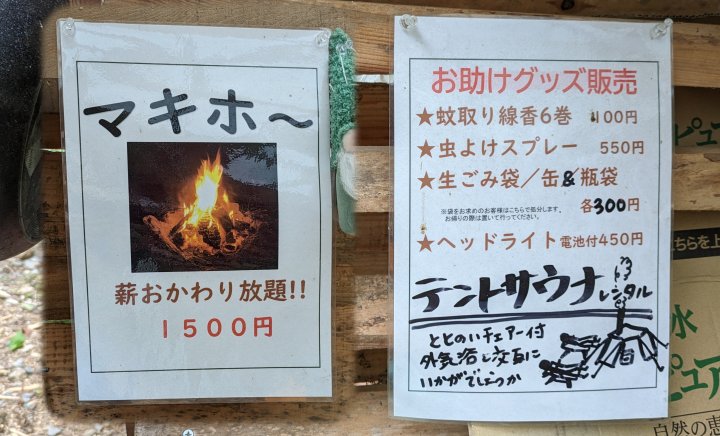 マキホ〜
薪おかわり放題!!
1500円
お助けグッズ販売
★蚊取り線香6巻 100円
★虫よけスプレー 550円
★生ごみ袋／缶&瓶袋
各300円
※袋をお求めのお客様はこちらで処分します。
お帰りの際は置いて行ってください。
★ヘッドライト電池付450円
テントサウナ
レンタル
ととのいチェアー付
外気浴と交互に
いかがでしょうか
ピュア
ちらを上
水
ピュア
自然の恵